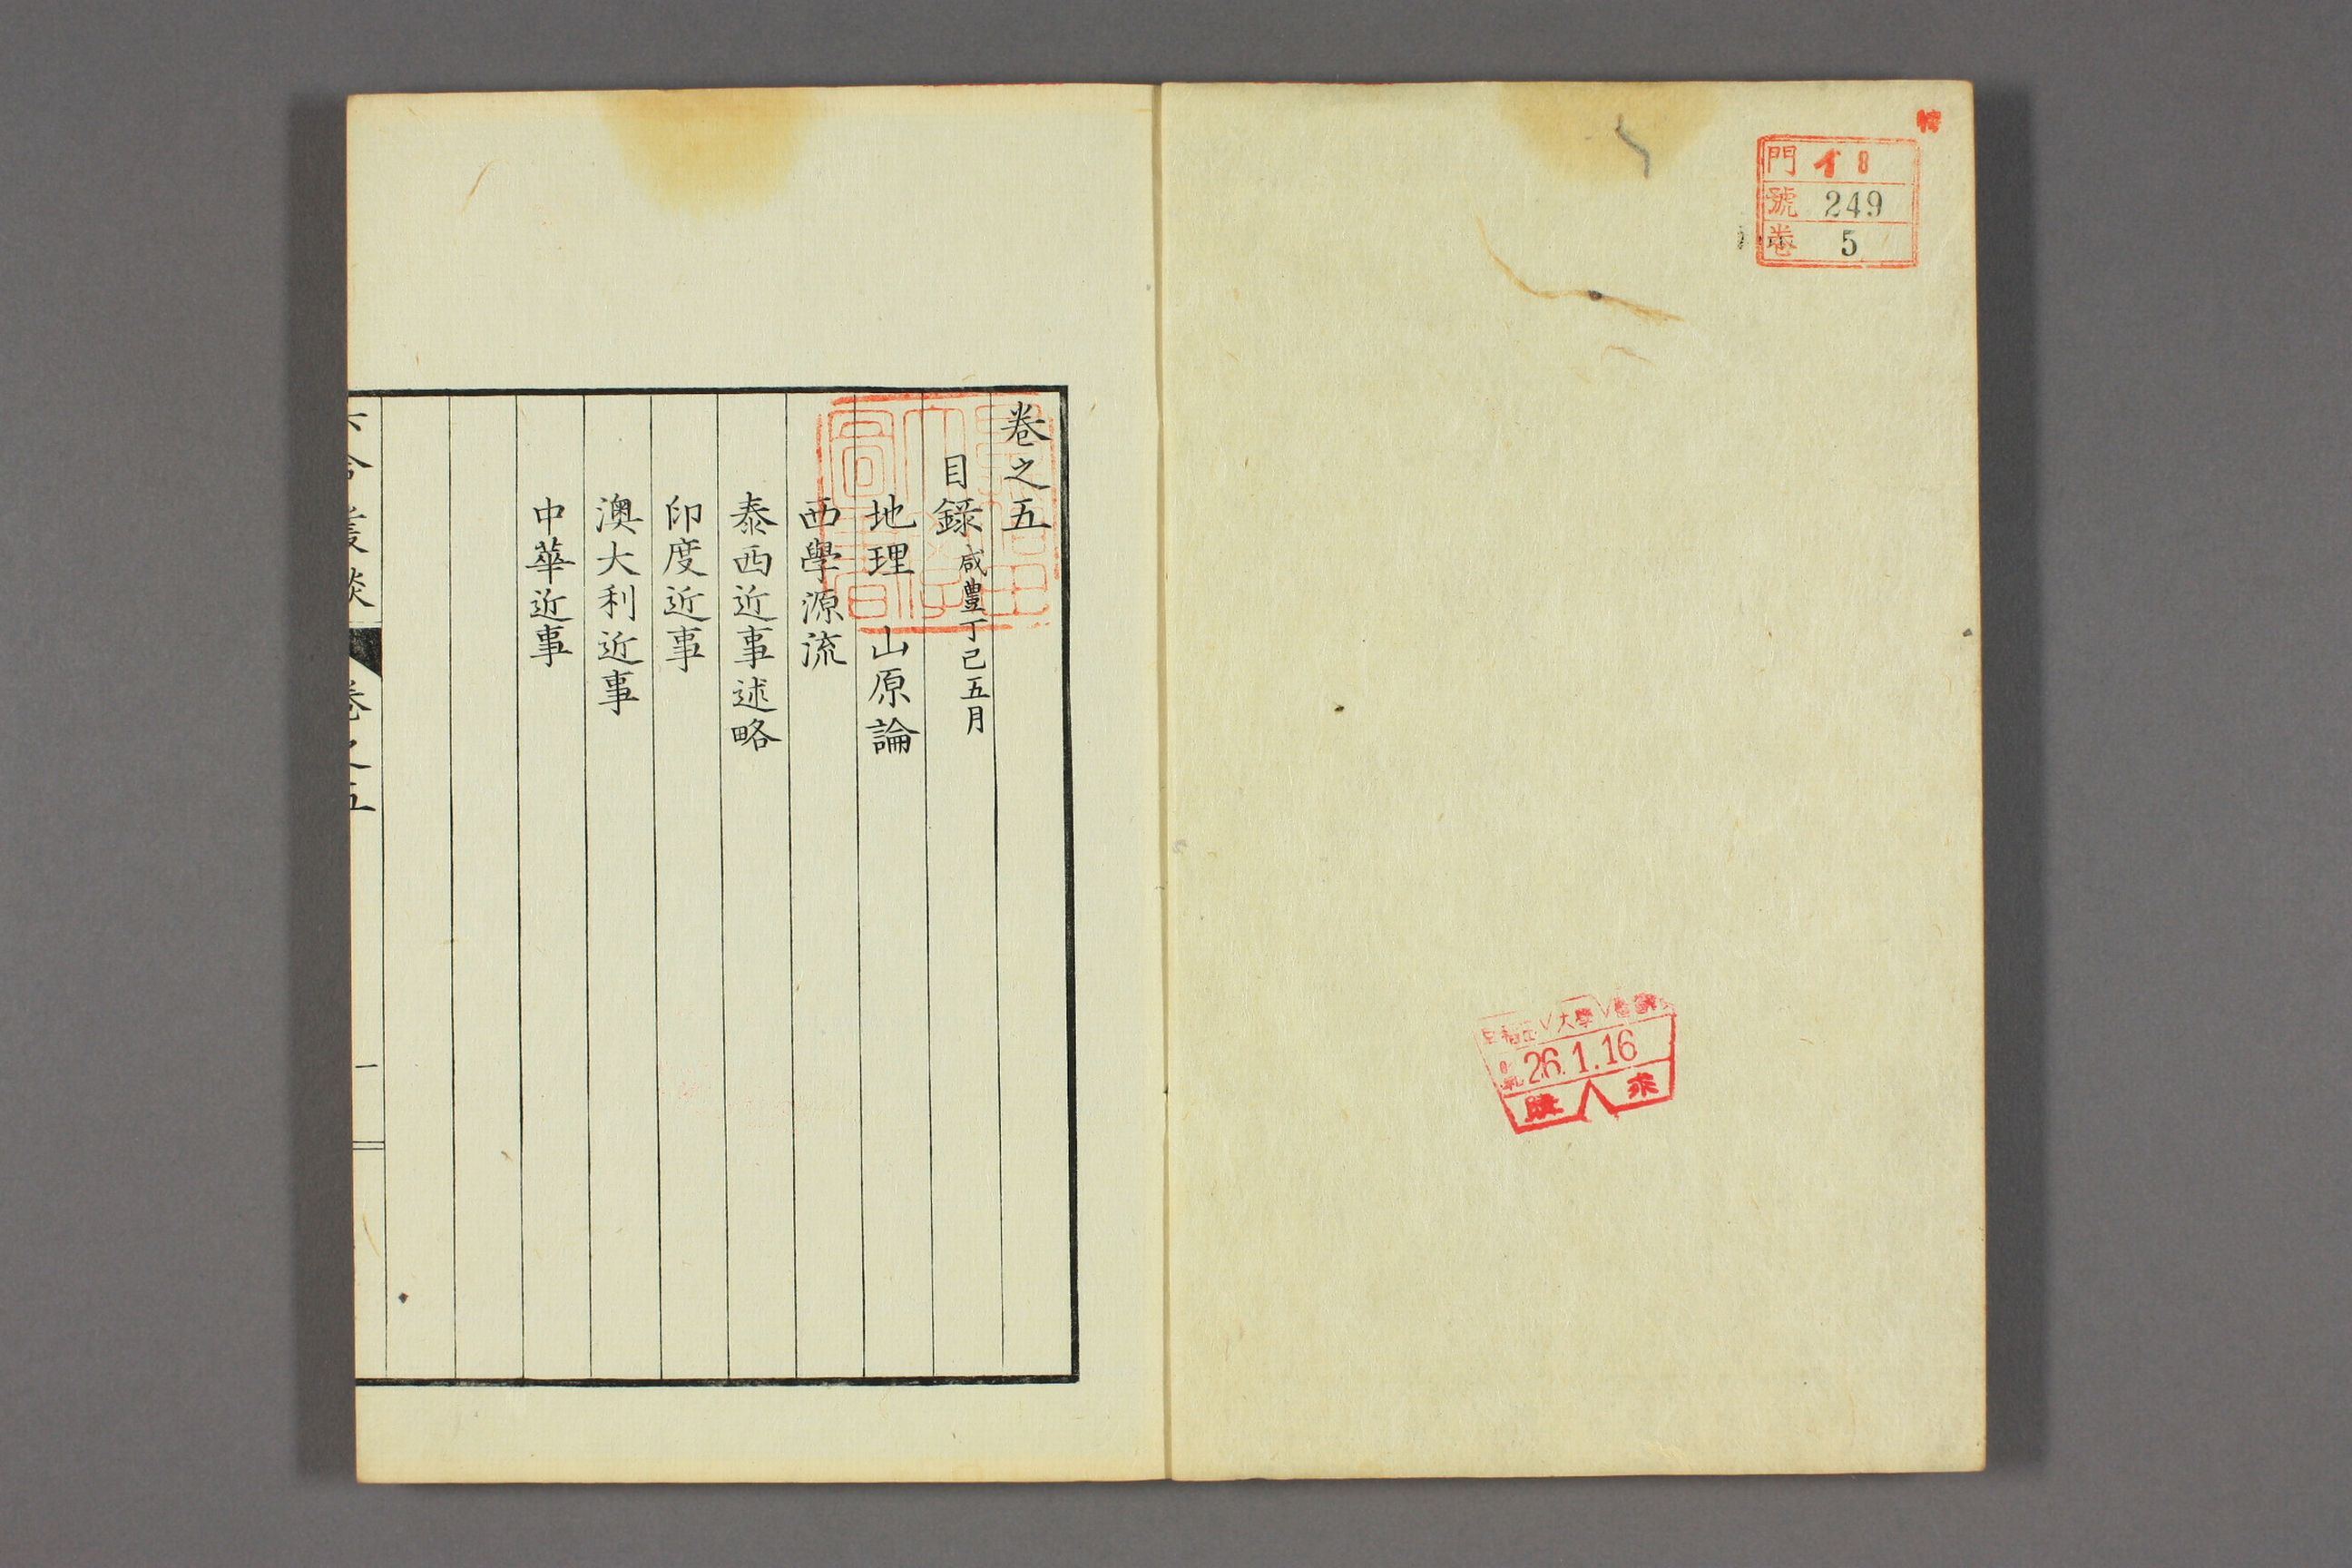 門 イ 8
號 249
卷 5
早稻田大學圖書
26.1.16
購 求
卷之五
目錄 咸豊丁巳五月
地理 山原論
西學源流
泰西近事述略
印度近事
澳大利近事
中華近事
六合叢談 卷之五 一